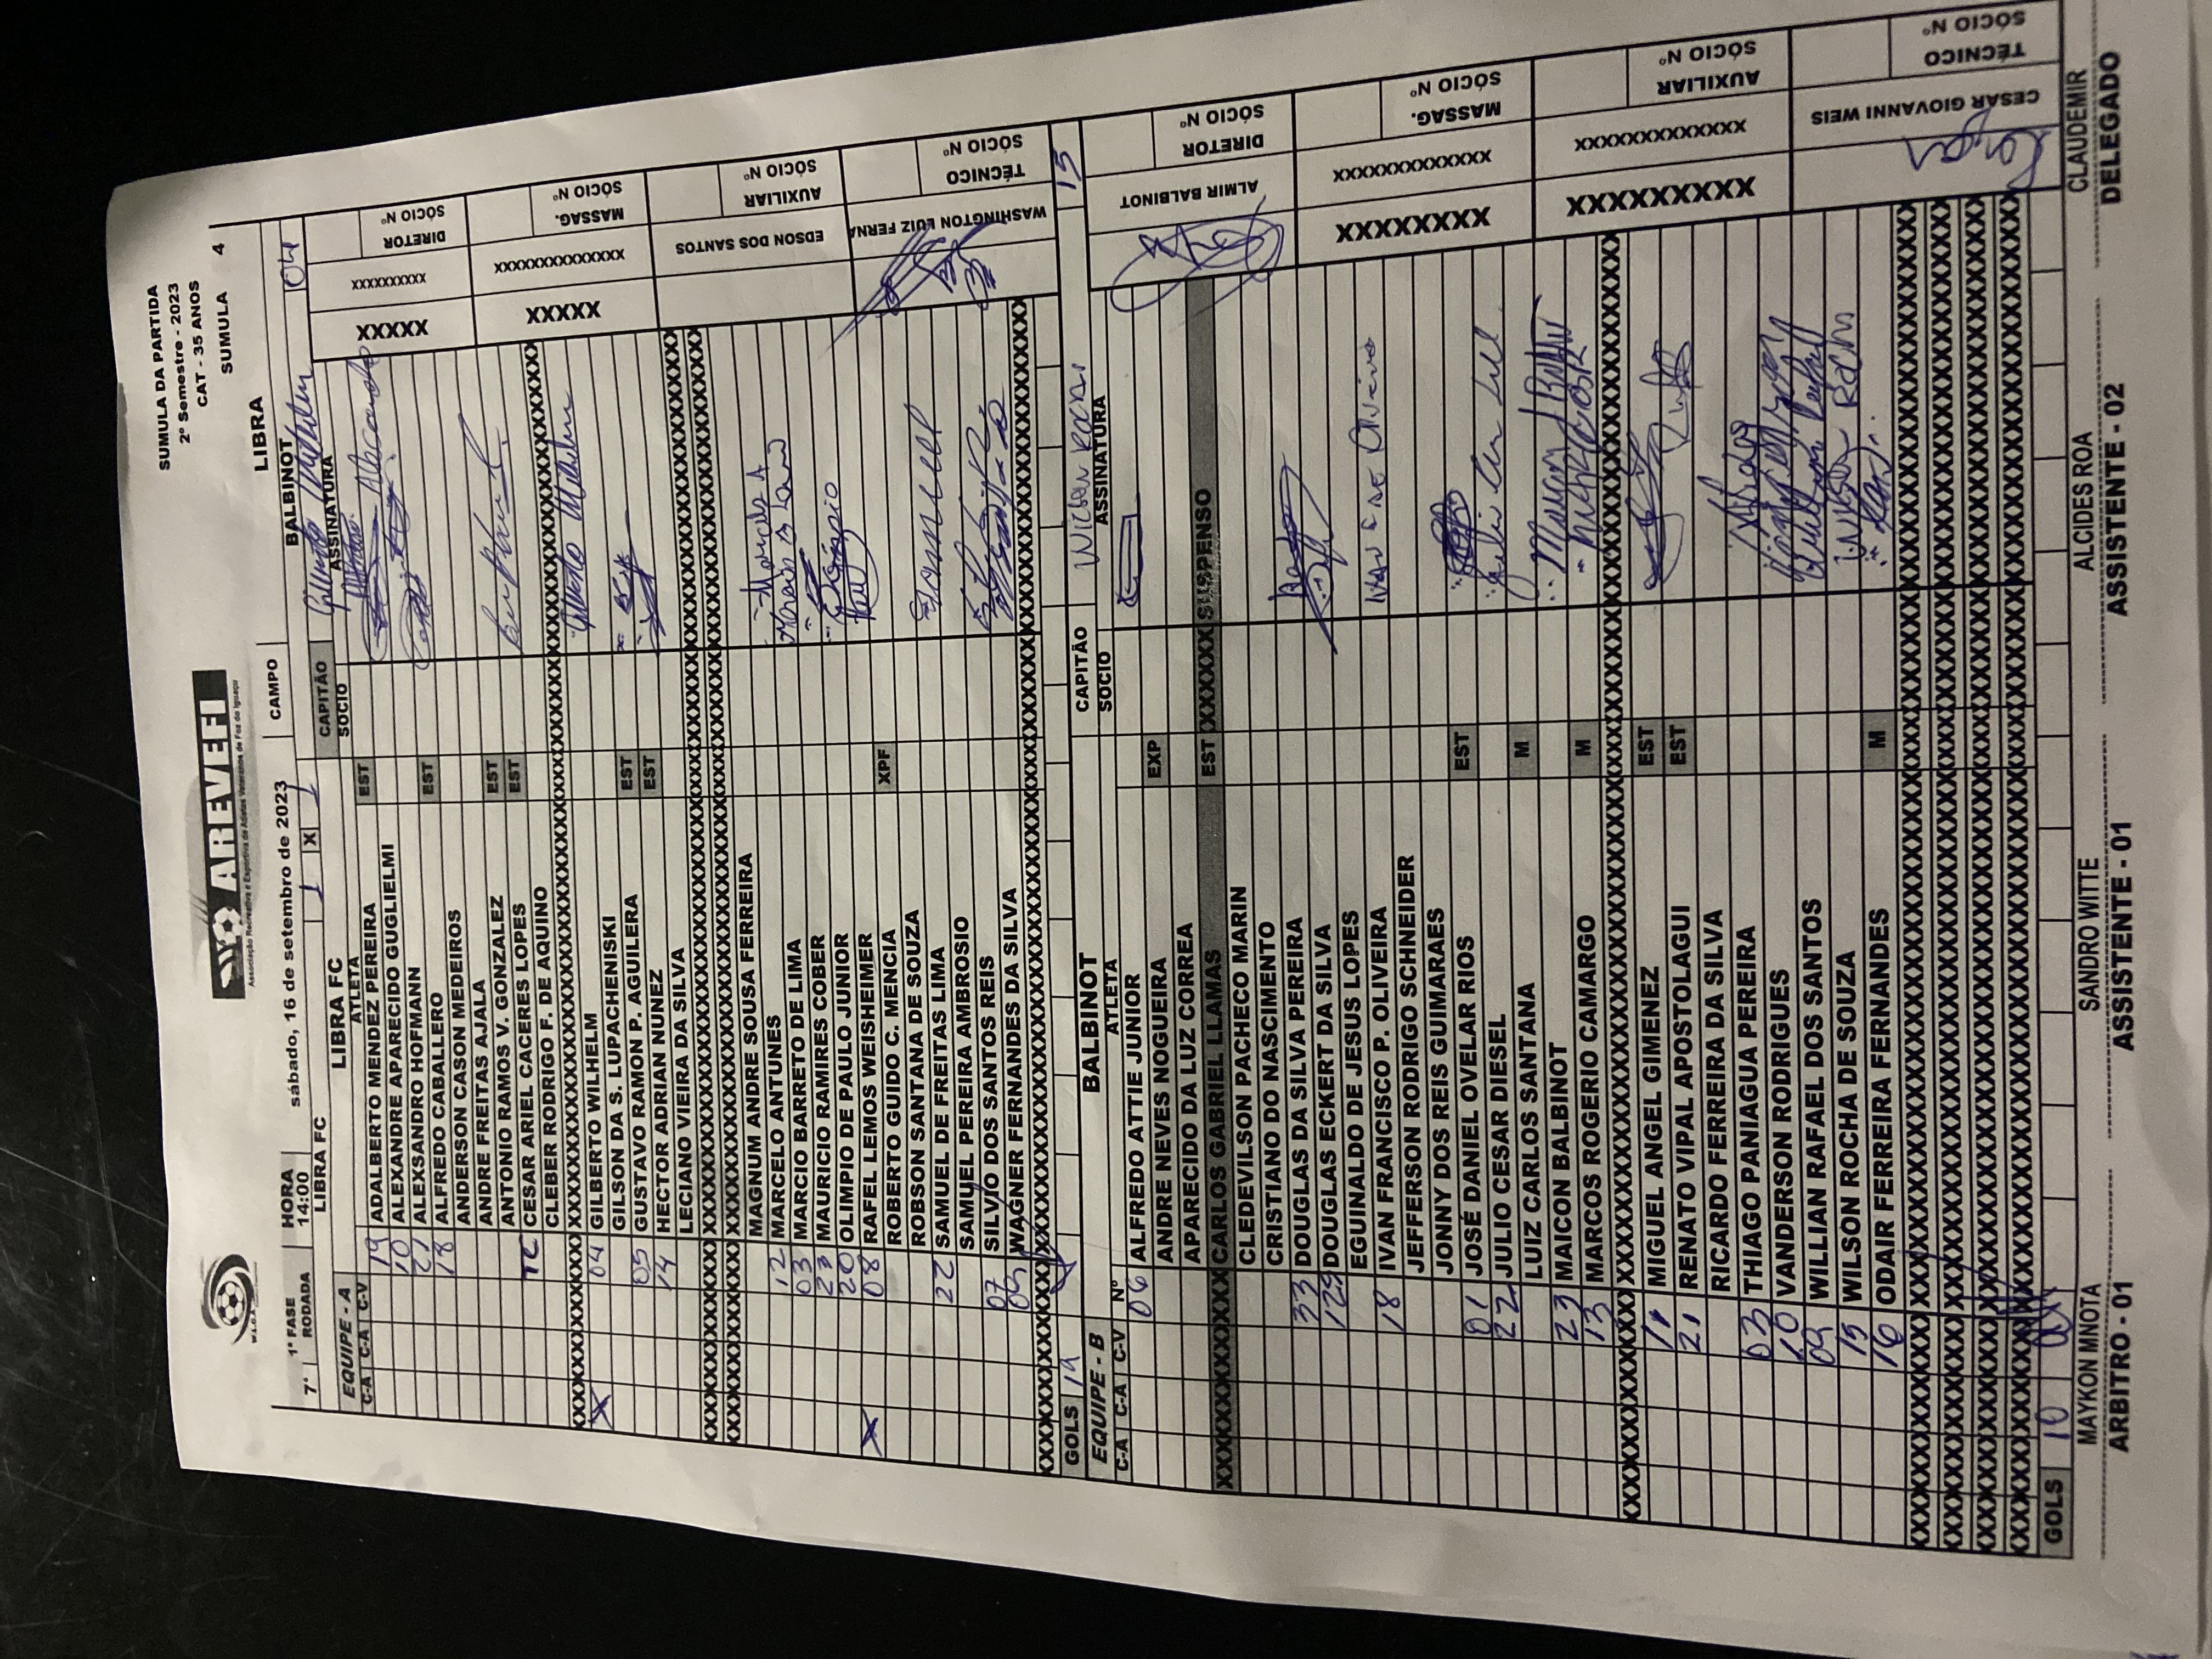 SUMULA DA PARTIDA
2º Semestre - 2023
CAT - 35 ANOS
SUMULA 4
W.L.O.S
AREVEFI
Associação Recreativa e Esportiva de Atletas Veteranos de Foz do Iguaçu
1ª FASE HORA sábado, 16 de setembro de 2023 CAMPO LIBRA
7ª RODADA 14:00 LIBRA FC 1 X 1 BALBINOT
EQUIPE - A LIBRA FC CAPITÃO 04
C-A C-A C-V ATLETA SÓCIO ASSINATURA
19 ADALBERTO MENDEZ PEREIRA EST
10 ALEXANDRE APARECIDO GUGLIELMI
21 ALEXSANDRO HOFMANN EST
18 ALFREDO CABALLERO
ANDERSON CASON MEDEIROS
ANDRE FREITAS AJALA EST
ANTONIO RAMOS V. GONZALEZ EST
TC CESAR ARIEL CACERES LOPES
CLEBER RODRIGO F. DE AQUINO
X 04 GILBERTO WILHELM
GILSON DA S. LUPACHENISKI EST
05 GUSTAVO RAMON P. AGUILERA EST
14 HECTOR ADRIAN NUNEZ
LECIANO VIEIRA DA SILVA
MAGNUM ANDRE SOUSA FERREIRA
12 MARCELO ANTUNES
03 MARCIO BARRETO DE LIMA
23 MAURICIO RAMIRES COBER
20 OLIMPIO DE PAULO JUNIOR
X 08 RAFEL LEMOS WEISHEIMER XPF
ROBERTO GUIDO C. MENCIA
ROBSON SANTANA DE SOUZA
22 SAMUEL DE FREITAS LIMA
SAMUEL PEREIRA AMBROSIO
07 SILVIO DOS SANTOS REIS
09 WAGNER FERNANDES DA SILVA
XXXXX XXXXXXXXXX DIRETOR SÓCIO Nº
XXXXX XXXXXXXXXXXXXX MASSAG. SÓCIO Nº
EDSON DOS SANTOS AUXILIAR SÓCIO Nº
WASHINGTON LUIZ FERNA TÉCNICO SÓCIO Nº
GOLS 19
EQUIPE - B BALBINOT CAPITÃO WILSON ROCHA 15
C-A C-A C-V Nº ATLETA SÓCIO ASSINATURA
06 ALFREDO ATTIE JUNIOR
ANDRE NEVES NOGUEIRA EXP
APARECIDO DA LUZ CORREA
CARLOS GABRIEL LLAMAS EST XXXXXX SUSPENSO
CLEDEVILSON PACHECO MARIN
CRISTIANO DO NASCIMENTO
33 DOUGLAS DA SILVA PEREIRA
DOUGLAS ECKERT DA SILVA
EGUINALDO DE JESUS LOPES
18 IVAN FRANCISCO P. OLIVEIRA
JEFFERSON RODRIGO SCHNEIDER
JONNY DOS REIS GUIMARAES
01 JOSÉ DANIEL OVELAR RIOS EST
22 JULIO CESAR DIESEL
LUIZ CARLOS SANTANA M
23 MAICON BALBINOT
13 MARCOS ROGERIO CAMARGO M
11 MIGUEL ANGEL GIMENEZ EST
21 RENATO VIPAL APOSTOLAGUI EST
RICARDO FERREIRA DA SILVA
03 THIAGO PANIAGUA PEREIRA
10 VANDERSON RODRIGUES
09 WILLIAN RAFAEL DOS SANTOS
15 WILSON ROCHA DE SOUZA
16 ODAIR FERREIRA FERNANDES M
ALMIR BALBINOT DIRETOR SÓCIO Nº
XXXXXXXXX XXXXXXXXXXXXX MASSAG. SÓCIO Nº
XXXXXXXXXX XXXXXXXXXXXXX AUXILIAR SÓCIO Nº
CESAR GIOVANNI WEIS TÉCNICO SÓCIO Nº
GOLS 10
MAYKON MNOTA SANDRO WITTE ALCIDES ROA CLAUDEMIR
ARBITRO - 01 ASSISTENTE - 01 ASSISTENTE - 02 DELEGADO